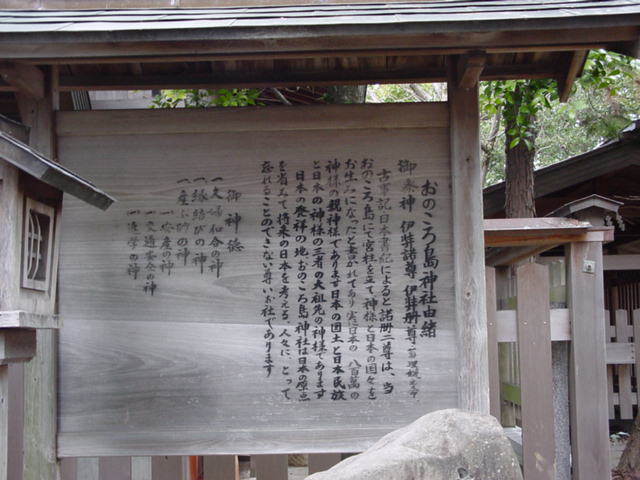 おのころ島神社由緒
御祭神 伊弉諾尊 伊弉册尊
古事記日本書紀によると諾册二尊は、当
おのころ島にて宮柱を立て神様と日本の国々を
お生みになったと書かれてあり実に日本の八百萬の
神様の親神様であります日本の国土と日本民族
と日本の神様の三者の大祖先の神様であります
日本の発祥の地、おのころ島神社は日本の原点
を省みて、将来の日本を考える人々に、とって
忘れることのできない尊いお社であります
御神徳
一、夫婦和合の神
一、縁結びの神
一、産ぶ砂の神
一、安産の神
一、交通安全の神
一、進学の神